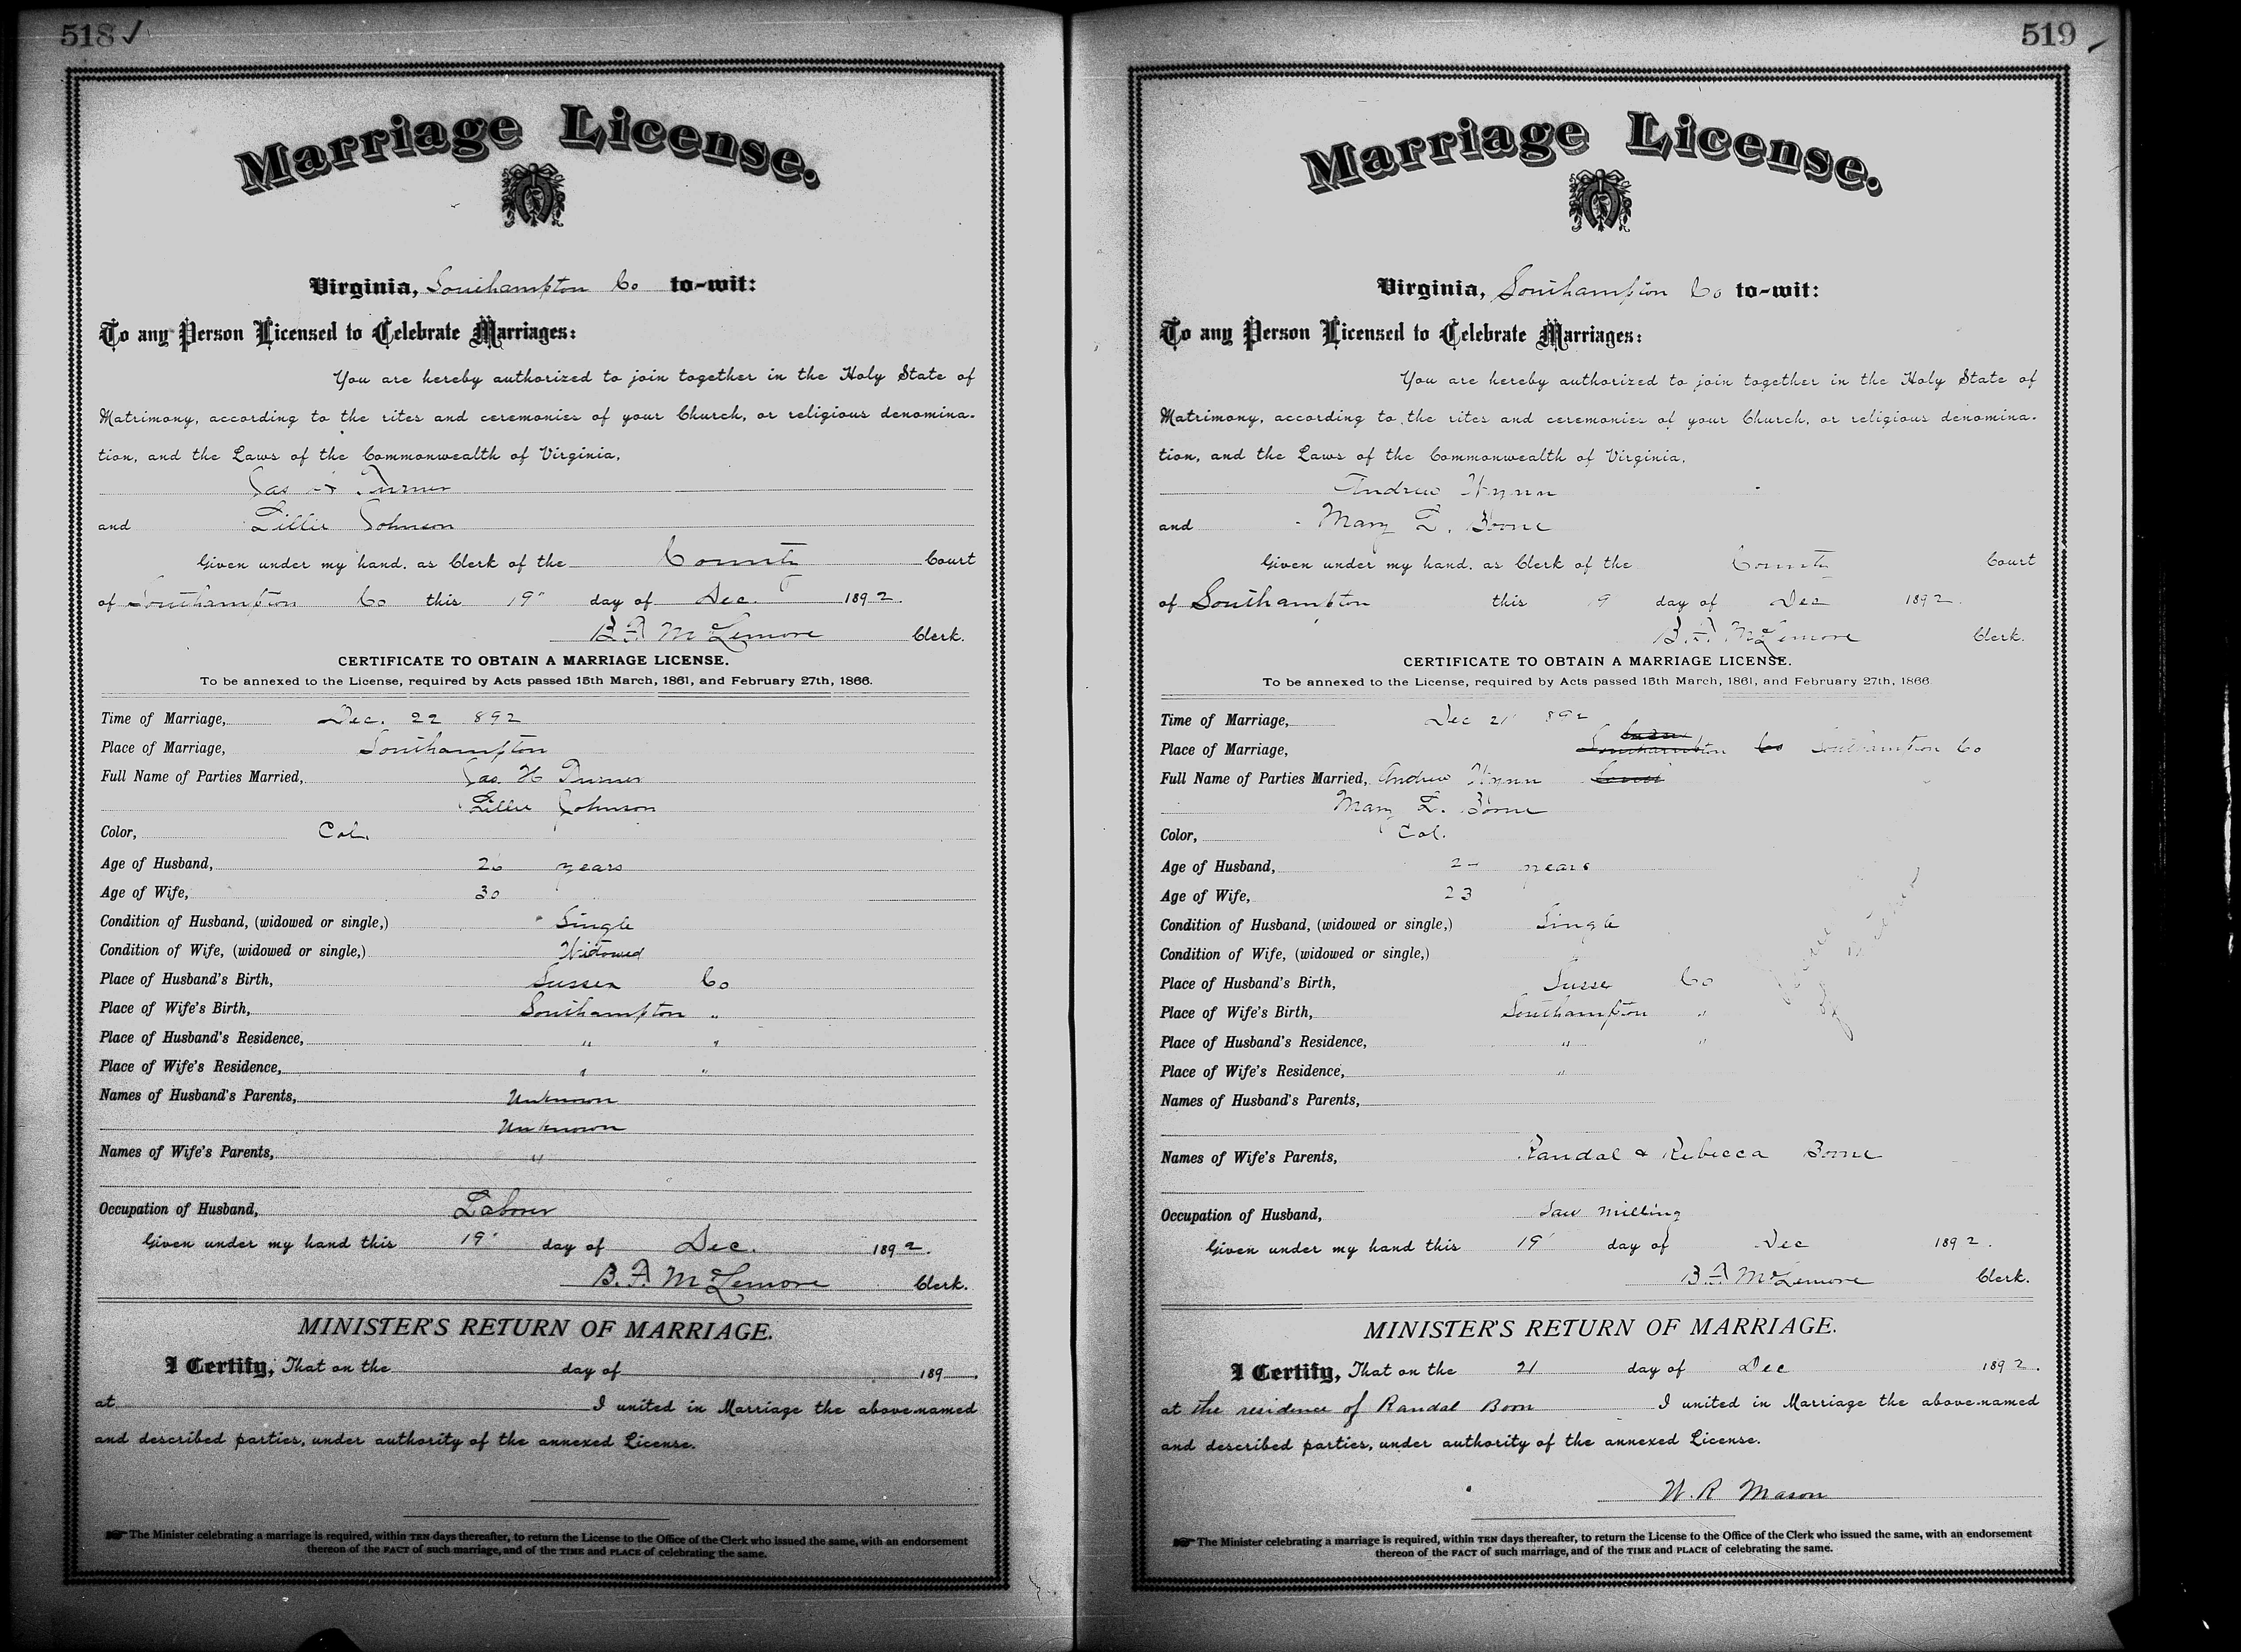 518 ✓
Marriage License.
Virginia, Southampton Co to-wit:
To any Person Licensed to Celebrate Marriages:
You are hereby authorized to join together in the Holy State of
Matrimony, according to the rites and ceremonies of your Church, or religious denomina-
tion, and the Laws of the Commonwealth of Virginia,
Jas H Turner
and Lillie Johnson
Given under my hand, as Clerk of the County Court
of Southampton Co this 19" day of Dec. 1892.
B. F. McLemore Clerk.
CERTIFICATE TO OBTAIN A MARRIAGE LICENSE.
To be annexed to the License, required by Acts passed 15th March, 1861, and February 27th, 1866.
Time of Marriage, Dec. 22 892
Place of Marriage, Southampton
Full Name of Parties Married, Jas. H Turner
Lillie Johnson
Color, Col.
Age of Husband, 26 years
Age of Wife, 30
Condition of Husband, (widowed or single,) Single
Condition of Wife, (widowed or single,) Widowed
Place of Husband's Birth, Sussex Co
Place of Wife's Birth, Southampton "
Place of Husband's Residence, " "
Place of Wife's Residence, " "
Names of Husband's Parents, Unknown
Unknown
Names of Wife's Parents, "
Occupation of Husband, Laborer
Given under my hand this 19" day of Dec. 1892.
B. F. McLemore Clerk.
MINISTER'S RETURN OF MARRIAGE.
I Certify, That on the day of 189 .
at I united in Marriage the above-named
and described parties, under authority of the annexed License.
The Minister celebrating a marriage is required, within TEN days thereafter, to return the License to the Office of the Clerk who issued the same, with an endorsement
thereon of the FACT of such marriage, and of the TIME and PLACE of celebrating the same.
519
Marriage License.
Virginia, Southampton Co to-wit:
To any Person Licensed to Celebrate Marriages:
You are hereby authorized to join together in the Holy State of
Matrimony, according to the rites and ceremonies of your Church, or religious denomina-
tion, and the Laws of the Commonwealth of Virginia,
Andrew Wynn
and Mary E. Boone
Given under my hand, as Clerk of the County Court
of Southampton this 19 day of Dec 1892.
B. F. McLemore Clerk.
CERTIFICATE TO OBTAIN A MARRIAGE LICENSE.
To be annexed to the License, required by Acts passed 15th March, 1861, and February 27th, 1866
Time of Marriage, Dec 21" 892
Place of Marriage, Southampton Co Southampton Co
Full Name of Parties Married, Andrew Wynn
Mary E. Boone
Color, Col.
Age of Husband, years
Age of Wife, 23
Condition of Husband, (widowed or single,) Single
Condition of Wife, (widowed or single,)
Place of Husband's Birth, Susse Co
Place of Wife's Birth, Southampton "
Place of Husband's Residence, " "
Place of Wife's Residence, "
Names of Husband's Parents,
Names of Wife's Parents, Randal & Rebecca Boone
Occupation of Husband, Saw milling
Given under my hand this 19" day of Dec 1892.
B. F. McLemore Clerk.
MINISTER'S RETURN OF MARRIAGE.
I Certify, That on the 21 day of Dec 1892.
at the residence of Randal Boon I united in Marriage the above-named
and described parties, under authority of the annexed License.
W. R Mason
The Minister celebrating a marriage is required, within TEN days thereafter, to return the License to the Office of the Clerk who issued the same, with an endorsement
thereon of the FACT of such marriage, and of the TIME and PLACE of celebrating the same.